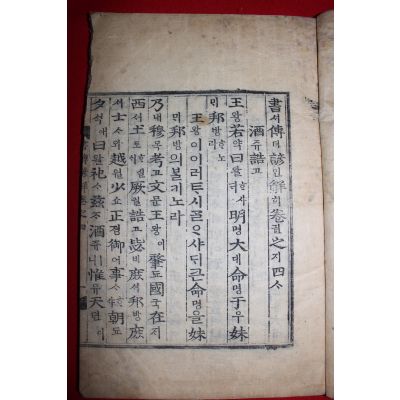 書셔傳뎐諺언解ᄒᆡ卷권之지四ᄉᆞ
酒쥬誥고
王왕若약曰왈明명大대命명于우妹
ᄆᆡ邦방ᄒᆞ노라
王왕이이러ᄐᆞ시ᄀᆞᆯᄋᆞ샤ᄃᆡ큰命명을妹
ᄆᆡ邦방의ᄇᆞᆯ키노라
乃내穆목考고文문王왕이肇됴國국在ᄌᆡ
西셔土토ᄒᆞ실ᄉᆡ厥궐誥고毖비庶셔邦방庶
셔士ᄉᆞ와越월少쇼正졍御어事ᄉᆞᄒᆞ샤朝됴
夕셕애曰왈祀ᄉᆞ玆ᄌᆞ酒쥬ㅣ니惟유天텬이